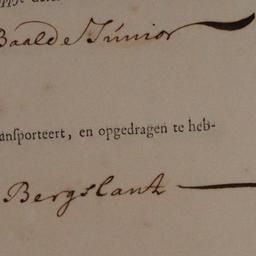 Baalde Junior
ansporteert, en opgedragen te heb-
Bergslant